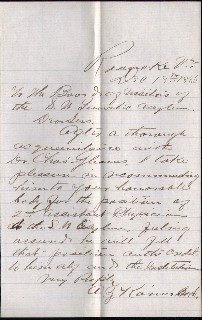 Roanoke Va
Dec 18th 188
To the Board of Visitors of
the S. W. Lunatic Asylum
Dr Sirs
After a thorough
acquaintance with
Dr Chas I take
pleasure in recommending
him to your honorable
body for the position of
2nd assistant Physician
to the S. W. Asylum, feeling
assured he will fill
that position with credit
to himself and the Institution
Very Resptly
A Z Koiner